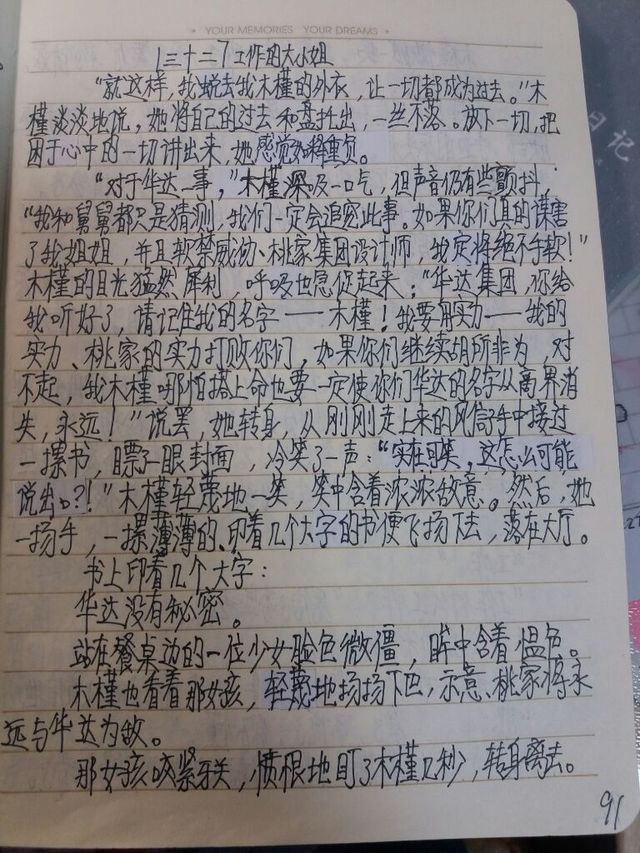 YOUR MEMORIES YOUR DREAMS
[三十二]工作的大小姐
“就这样，我蜕去我木槿的外衣，让一切都成为过去。”木
槿淡淡地说，她将自己的过去和盘托出，一丝不落。放下一切，把
困于心中的一切讲出来，她感觉如释重负。
“对于华达一事，”木槿深吸一口气，但声音仍有些颤抖，
“我和舅舅都只是猜测，我们一定会追究此事。如果你们真的谋害
了我姐姐，并且软禁威胁、桃家集团设计师，我定将绝不手软！”
木槿的目光猛然犀利，呼吸也急促起来；“华达集团，你给
我听好了，请记住我的名字——木槿！我要用实力——我的
实力、桃家的实力打败你们，如果你们继续胡所非为，对
不起，我木槿哪怕搭上命也要一定使你们华达的名字从商界消
失，永远！”说罢，她转身，从刚刚走上来的风信子中接过
一摞书，瞟了眼封面，冷笑了一声：“实在可笑，这怎么可能
说出口？！”木槿轻蔑地一笑，笑中含着浓浓敌意。然后，她
一扬手，一摞薄薄的、印着几个大字的书便飞扬下去，落在大厅。
书上印着几个大字：
华达没有秘密。
站在餐桌边的一位少女脸色微僵，眸中含着愠色。
木槿也看着那女孩，轻蔑地扬扬下巴，示意、桃家将永
远与华达为敌。
那女孩咬紧牙关，愤恨地盯了木槿几秒，转身离去。
91
日记